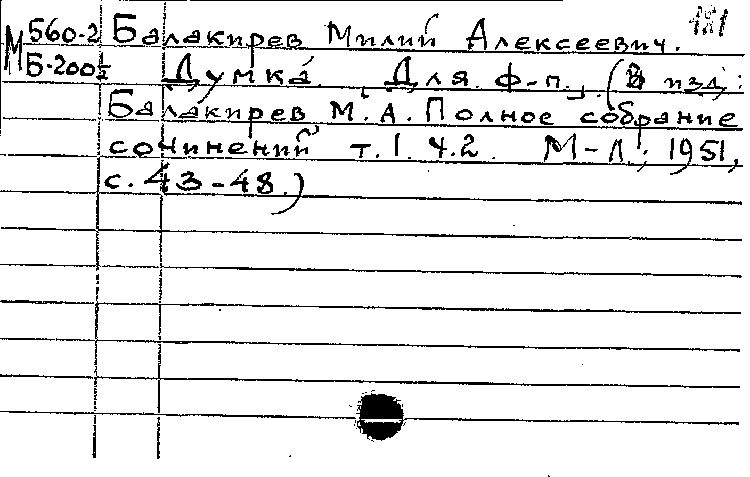 М 560-2 Балакирев Милий Алексеевич. 181
Б-200 1/2 Думка. [Для ф-п.] (В изд.:
Балакирев М.А. Полное собрание
сочинений т.1. ч.2. М-Л; 1951,
с. 43-48.)